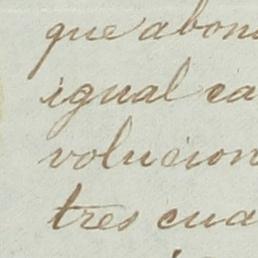 que abon
igual ca
volucion
tres cua